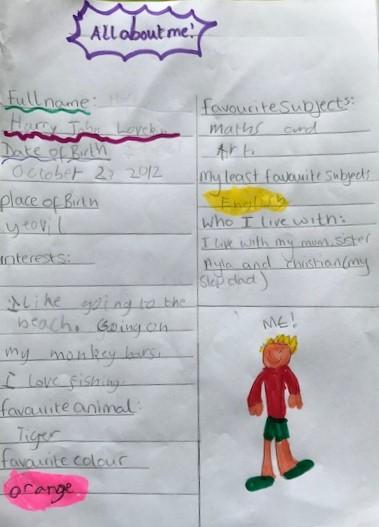 All about me!
Full name:
Harry John
Date of Birth
October 2, 2012
place of Birth
yeovil
interests:
I like going to the
beach. Going on
my monkey bars.
I love fishing.
favourite animal:
Tiger
favourite colour
orange
favourite subjects:
maths and
Art.
my least favourite subjects
English
Who I live with:
I live with my mum, sister
Ayla and christian (my
step dad)
ME!